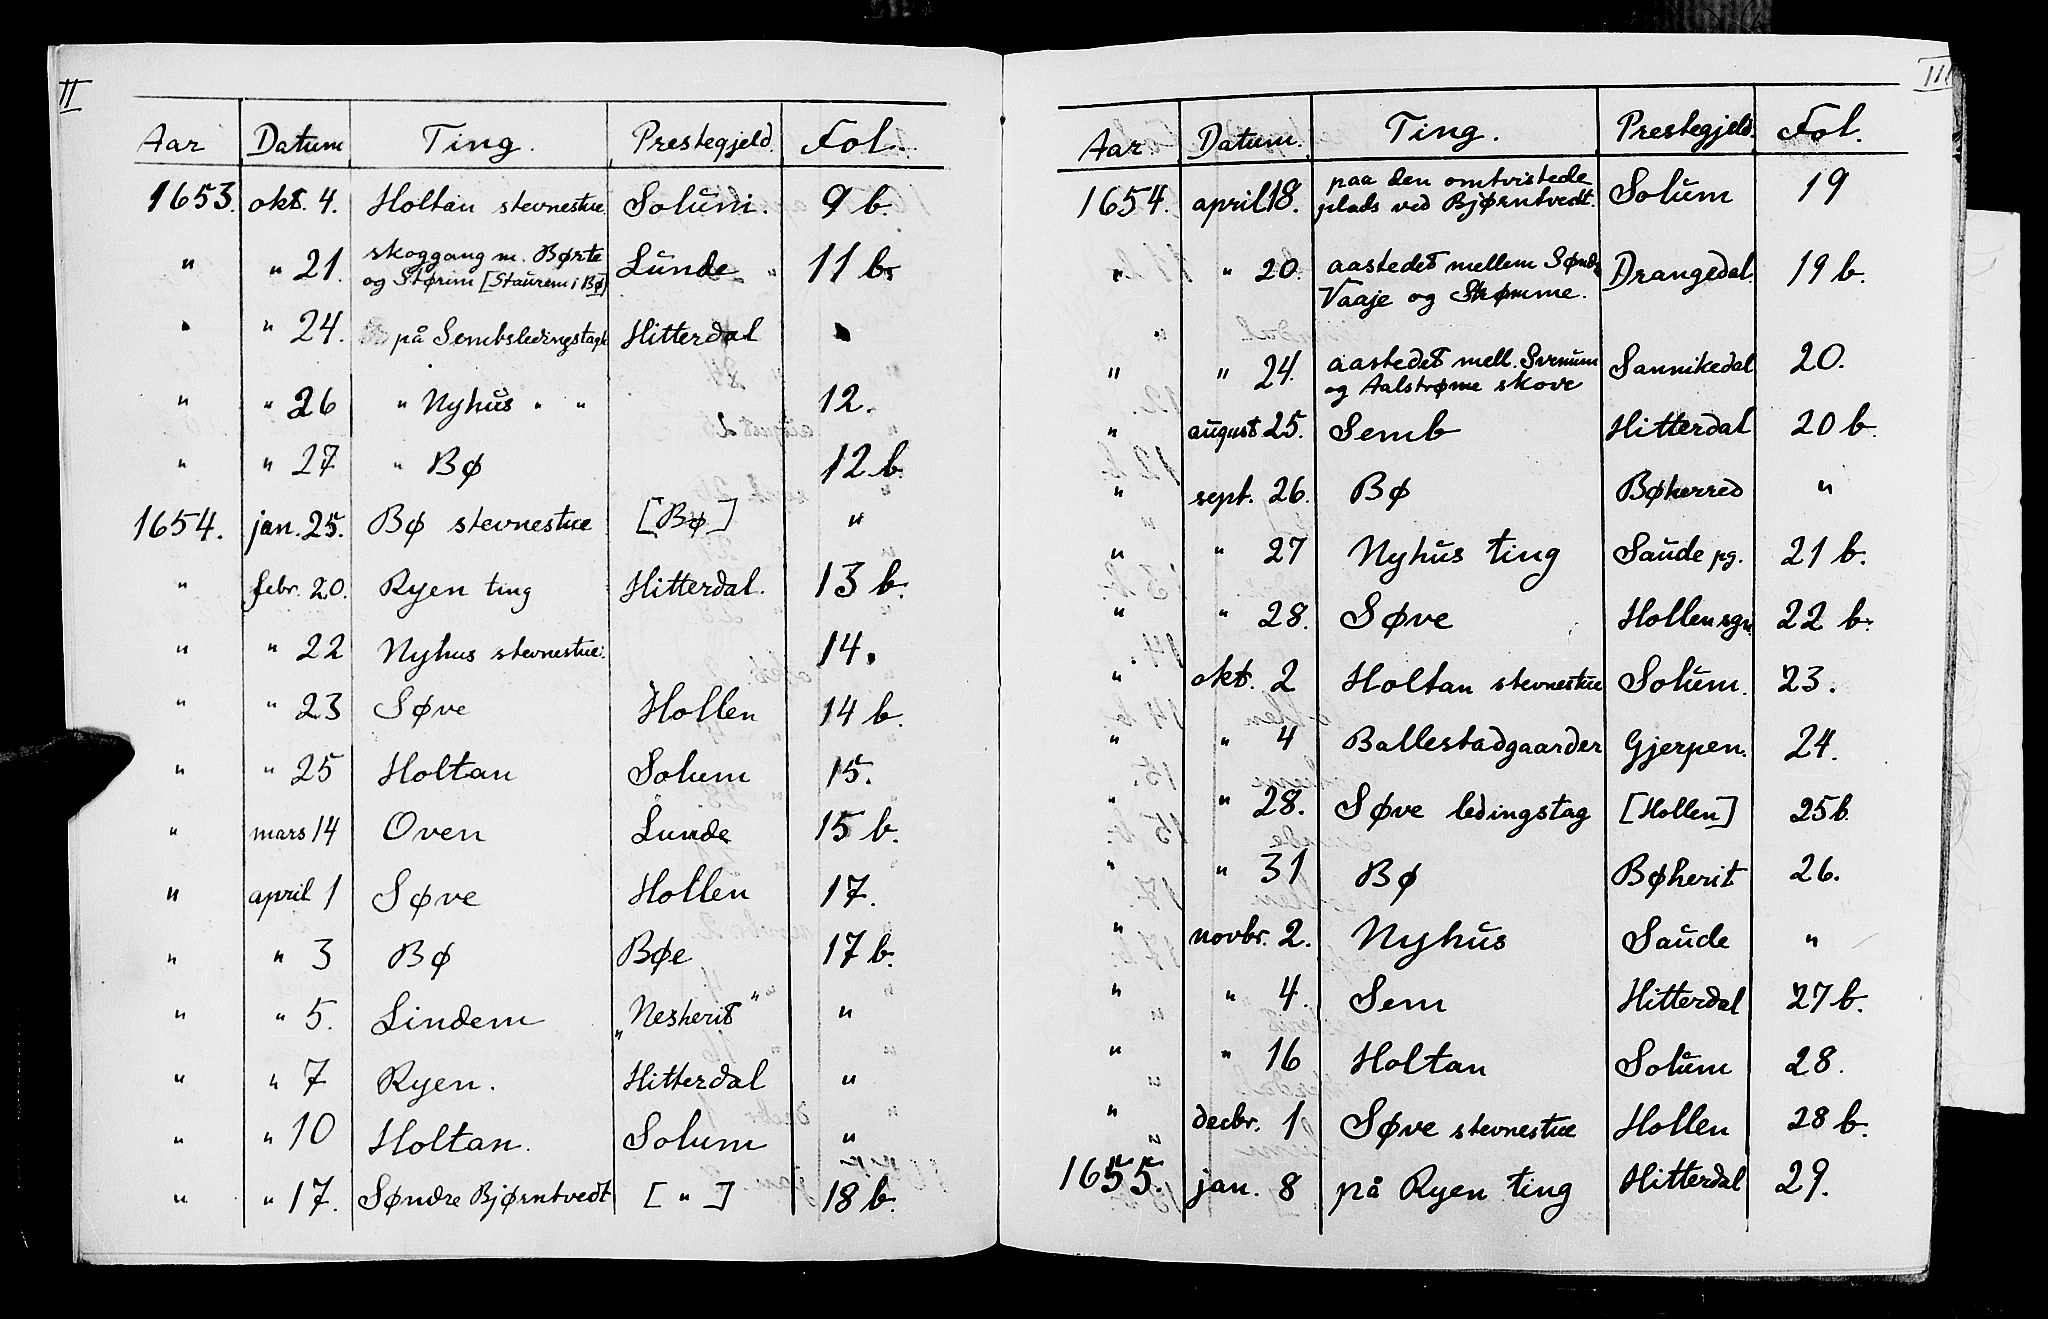 II
Aar Datum Ting. Prestegjeld. Fol.
1653. okt. 4. Holtan stevnestue Solum. 9 b.
" " 21. skoggang m. Børte Lunde 11 b.
og Størim [Staurem i Bø]
" " 24. på Sembsledingstagh Hitterdal "
" " 26 " Nyhus " " 12.
" " 27 " Bø 12 b.
1654. jan. 25. Bø stevnestue [Bø] "
" febr. 20. Ryen ting Hitterdal. 13 b.
" " 22 Nyhus stevnestue. 14.
" " 23 Søve Hollen 14 b.
" " 25 Holtan Solum 15.
" mars 14 Oven Lunde 15 b.
" april 1 Søve Hollen 17.
" " 3 Bø Bøe 17 b.
" " 5. Lindem „Nesherit" "
" " 7 Ryen. Hitterdal "
" " 10 Holtan. Solum "
" " 17. Søndre Bjørntvedt [ " ] 18 b.
III
Aar. Datum. Ting. Prestegjeld. Fol.
1654. april 18. paa den omtvistede Solum 19
plads ved Bjørntvedt.
" " 20. aastedet mellem Søndr Drangedal. 19 b.
Vaaje og Strømme.
" " 24. aastedet mell. Svenum Sannikedal 20.
og Aalstrøme skove
" august 25. Semb Hitterdal 20 b.
" sept. 26. Bø Bøherred "
" " 27 Nyhus ting Saude pg. 21 b.
" " 28. Søve Hollen sgn. 22 b.
" okt. 2 Holtan stevnestue Solum. 23.
" " 4 Ballestadgaarder Gjerpen. 24.
" " 28. Søve ledingstag [Hollen] 25 b.
" " 31 Bø Bøherit 26.
" novbr. 2. Nyhus Saude "
" " 4. Sem Hitterdal 27 b.
" " 16 Holtan Solum 28.
" decbr. 1 Søve stevnestue Hollen 28 b.
1655. jan. 8 på Ryen ting Hitterdal 29.